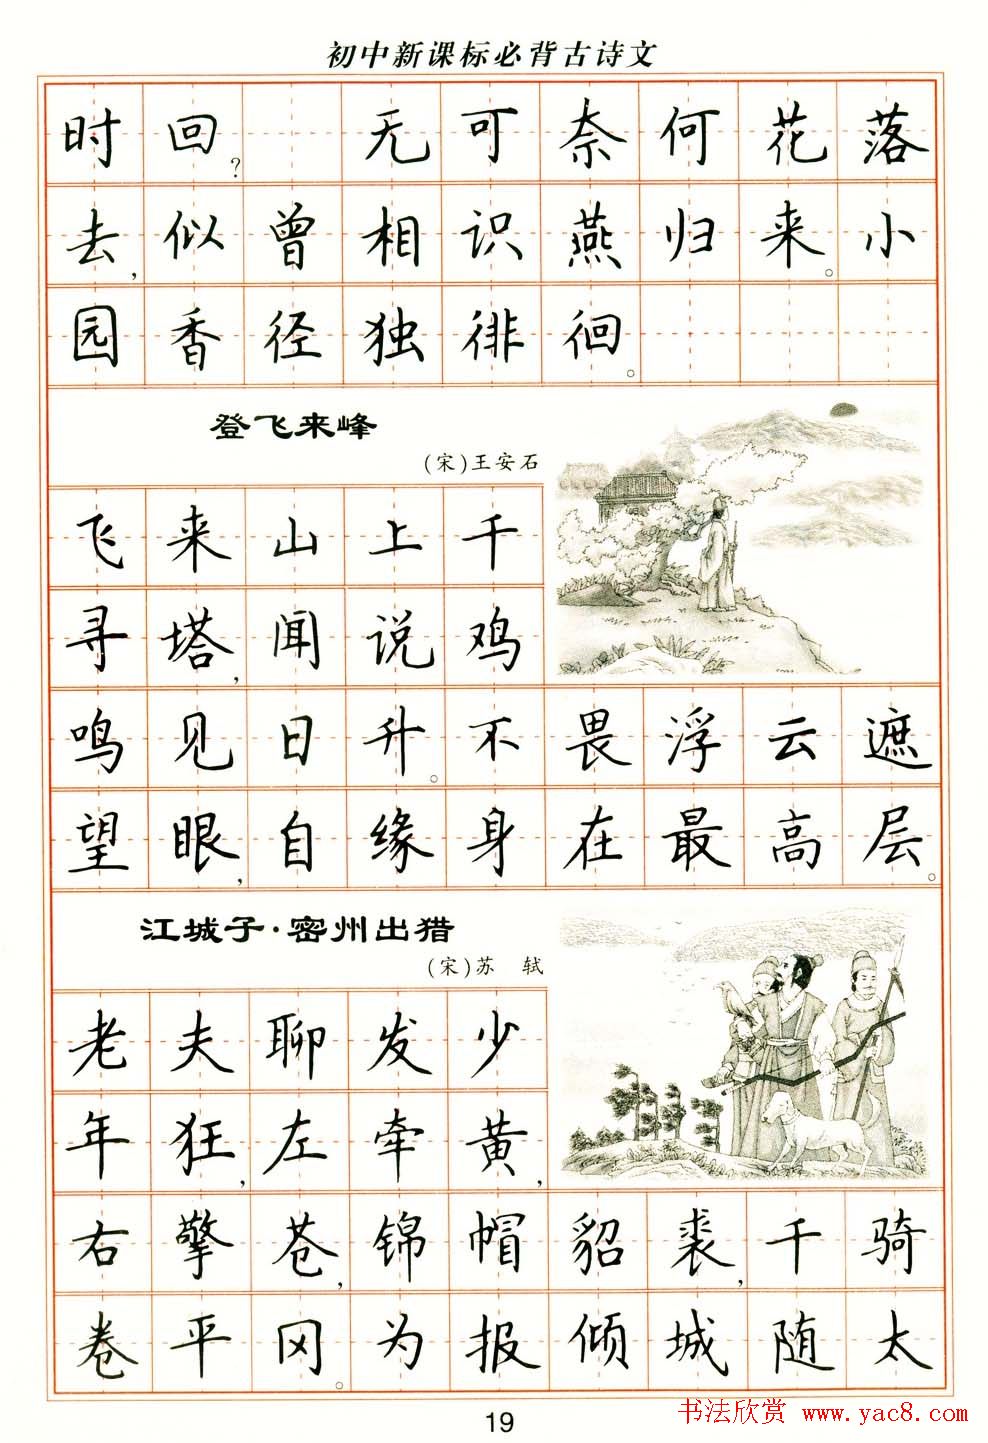 初中新课标必背古诗文
时回?　无可奈何花落
去,似曾相识燕归来。小
园香径独徘徊。
登飞来峰
(宋)王安石
飞来山上千
寻塔,闻说鸡
鸣见日升。不畏浮云遮
望眼,自缘身在最高层。
江城子·密州出猎
(宋)苏　轼
老夫聊发少
年狂,左牵黄,
右擎苍,锦帽貂裘,千骑
卷平冈。为报倾城随太
19
书法欣赏 www.yac8.com